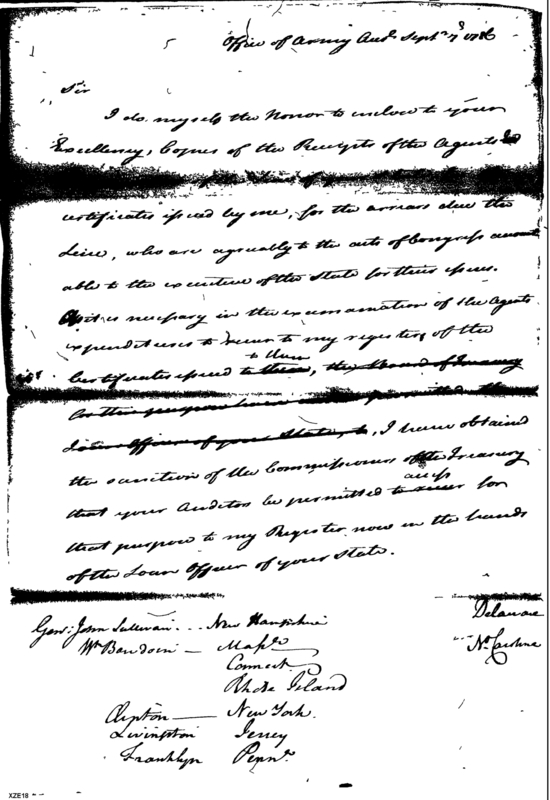 Office of Army Aud. Sept. 7th 1786
Sir
I do myself the Honor to inclose to your
Excellency, Copies of the Receipts of the Agents
certificates issued by me, for the arrears due the
Line, who are agreeably to the acts of Congress
able to the executive of the State for their issues.
As it is necessary in the examination of the Agents
expenditures to recur to my registers of the
to them
Certificates issued to them, the Board of Treasury
for this purpose have permitted the
Loan Officer of your State, to, I have obtained
the sanction of the Commissioners of the Treasury
access
that your Auditor be permitted to recur for
that purpose to my Register now in the hands
of the Loan Officer of your State.
Genl. John Sullivan - - - New Hampshire Delaware
Wm Bowdoin - Massts. No. Carolina
Connect.
Rhode Island
Clinton - New York.
Livingston Jersey
Franklyn Penna.
XZE18